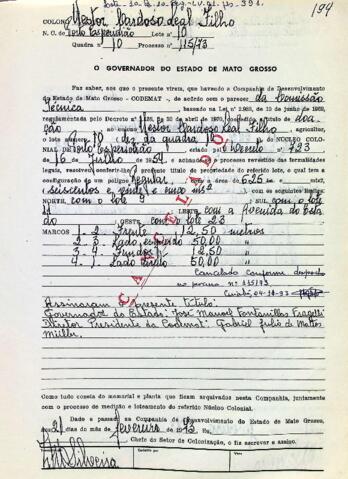 194
COLONO Nestor Cardoso Leal Filho
N. C. de Porto Esperidião Lote nº 10
Quadra nº 10 Processo nº 115/73
O GOVERNADOR DO ESTADO DE MATO GROSSO
Faz saber, aos que o presente virem, que havendo a Companhia de Desenvolvimento
do Estado de Mato Grosso - CODEMAT -, de acôrdo com o parecer da Comissão
Técnica
regulamentada pelo Decreto nº de abril de 1970, o título de doa-
ção ao colono Nestor Cardoso Leal Filho, agricultor,
o lote nº 10 da quadra 10 do NÚCLEO COLO-
NIAL DE Porto Esperidião criado pelo Decreto nº 723
de 16 de Julho 1954 e achando-se o processo revestido das formalidades
legais, resolveu conferir-lhe o presente título de propriedade do referido lote, o qual tem
a configuração de um polígono regular e área de 625 m²
(seiscentos e vinte e cinco m²) com os seguintes limites:
NORTE, com o lote 9 SUL com o lote
; LESTE com a Avenida do Esta
do ; OESTE com o lote 23
MARCOS 1 - 2 Frente 12,50 metros
2 - 3 Lado esquerdo 50,00 "
3 - 4 Fundos 12,50 "
4 - 1 Lado direito 50,00 "
CANCELADO
Cancelado conforme despacho
no processo nº 115/73
Cuiabá, 04-10-93
Assinaram o presente título:
Governador do Estado: José Manoel Fontanillas Fragelli
Diretor Presidente da Codemat: Gabriel Julio de Mattos
Müller.
Como tudo consta do memorial e planta que ficam arquivados nesta Companhia, juntamente
com o processo de medição e loteamento do referido Núcleo Colonial.
Dado e passado na Companhia de Desenvolvimento do Estado de Mato Grosso,
aos 21 dias do mês de fevereiro de 1973. Eu,
Chefe do Setor de Colonização, o fiz escrever e assino.
Silveira